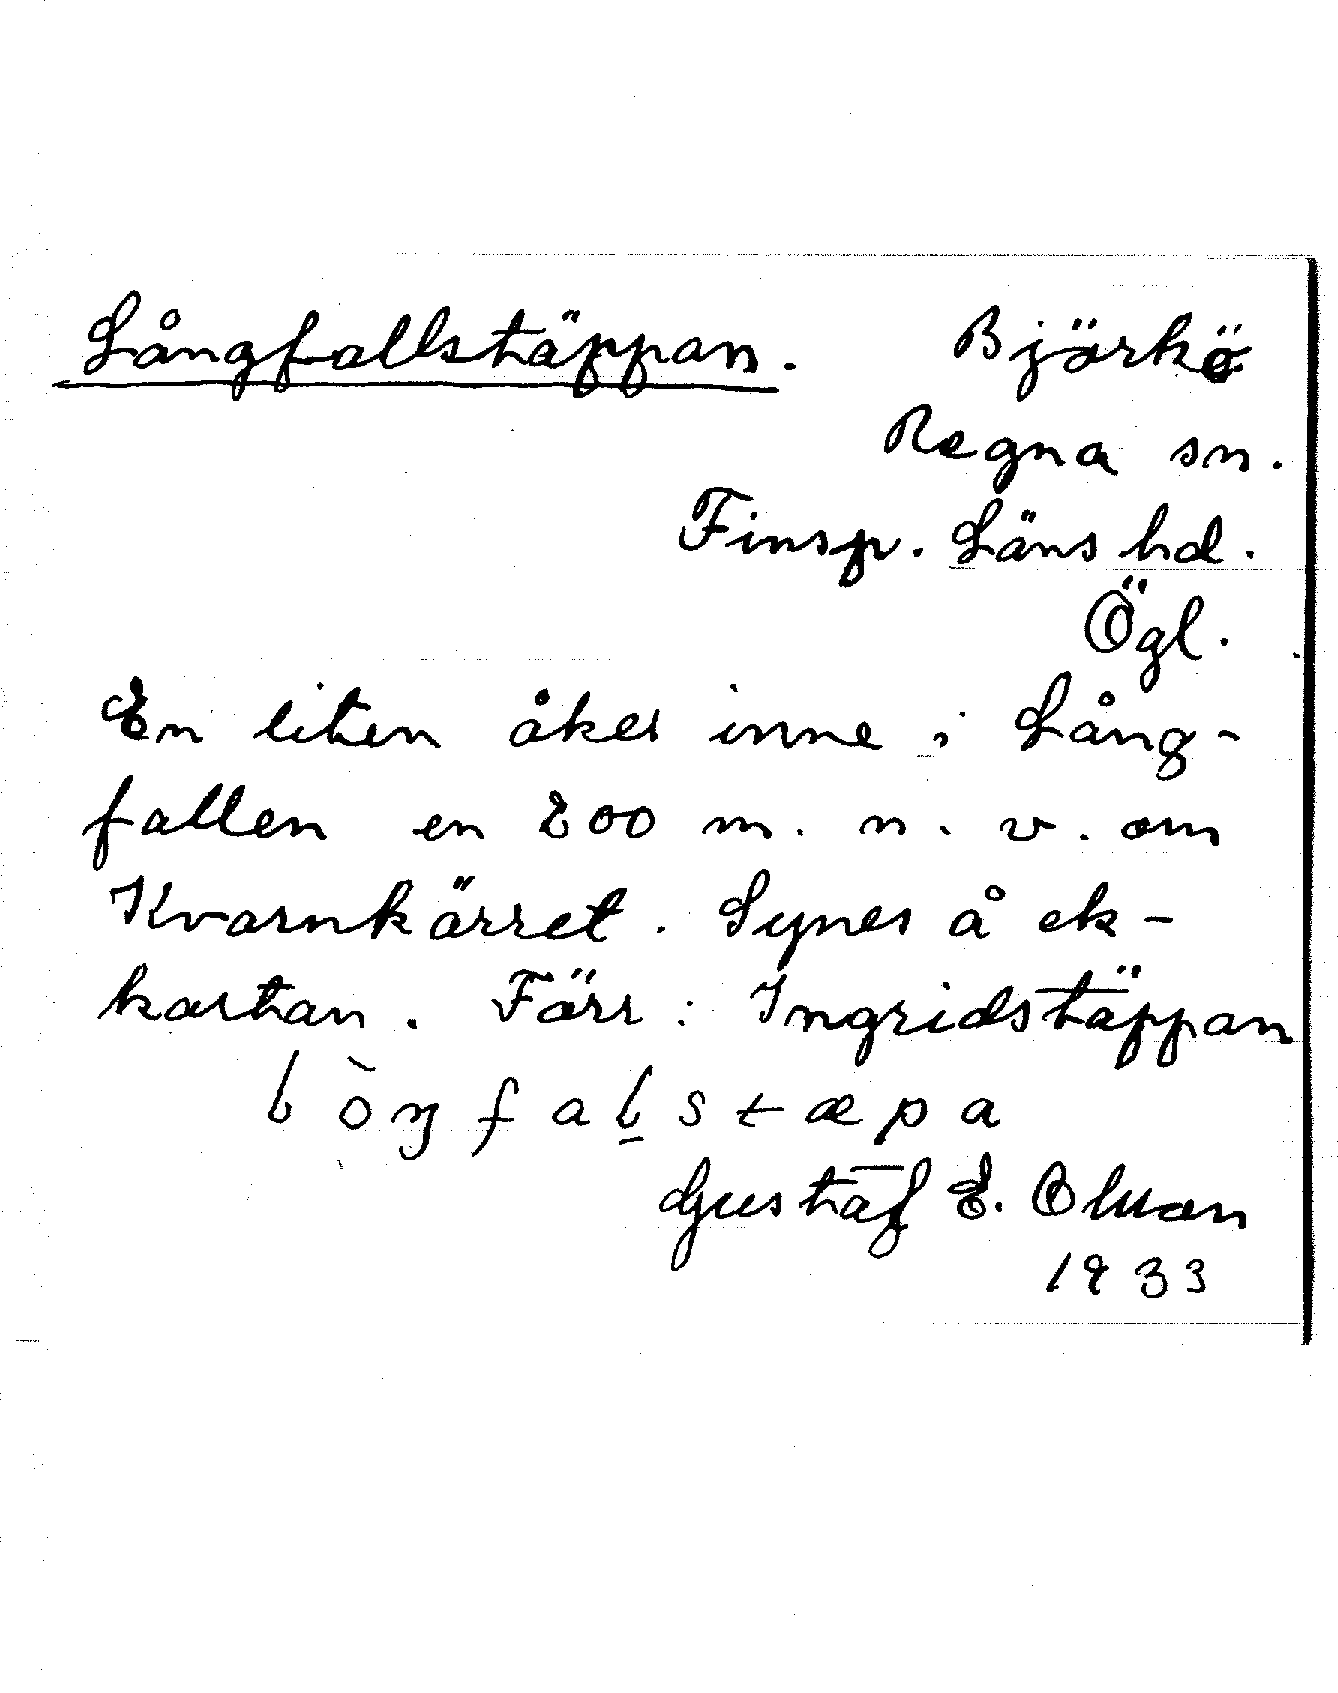 Långfallstäppan. Björkö
Regna sn.
Finsp. Läns hd.
Ögl.
En liten åker inne i Lång-
fallen en 200 m. n. v. om
Kvarnkärret. Synes å ek-
kartan. Förr: Ingridstäppan
lòŋfalstæpa
Gustaf E. Olsson
1933